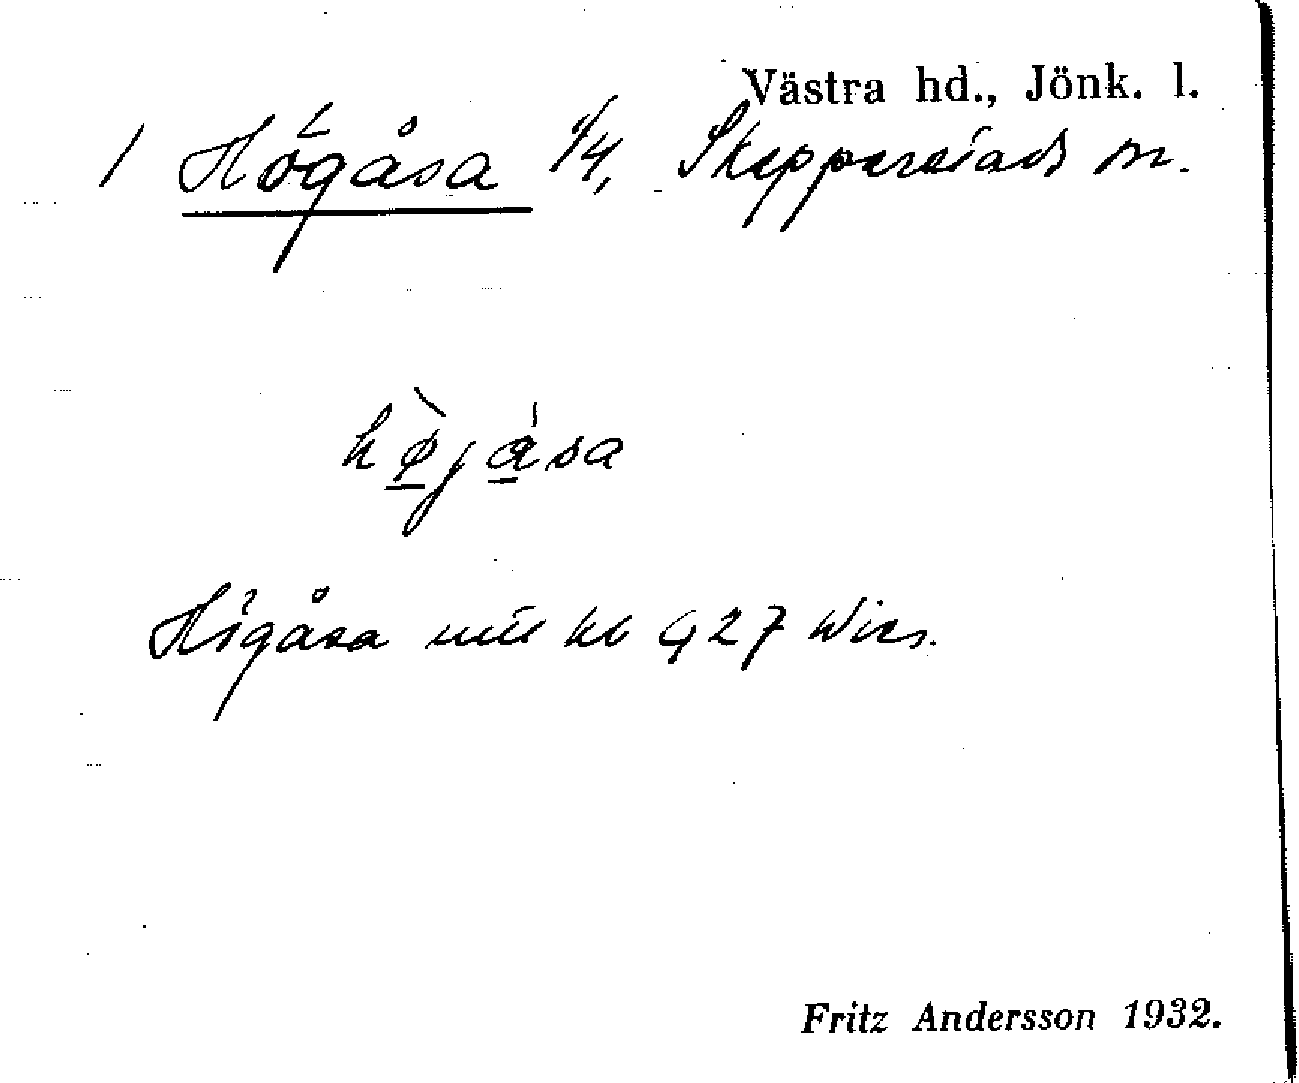 Västra hd., Jönk. l.
1 Högåsa 1/4, Skepperstads sn.
hø̀jåsa
Högåsa 927 Wies.
Fritz Andersson 1932.